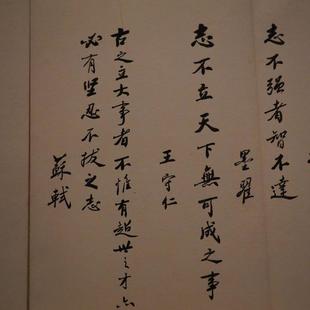 志不强者智不達
墨翟
志不立天下無可成之事
王守仁
古之立大事者不惟有超世之才亦
必有坚忍不拔之志
蘇軾